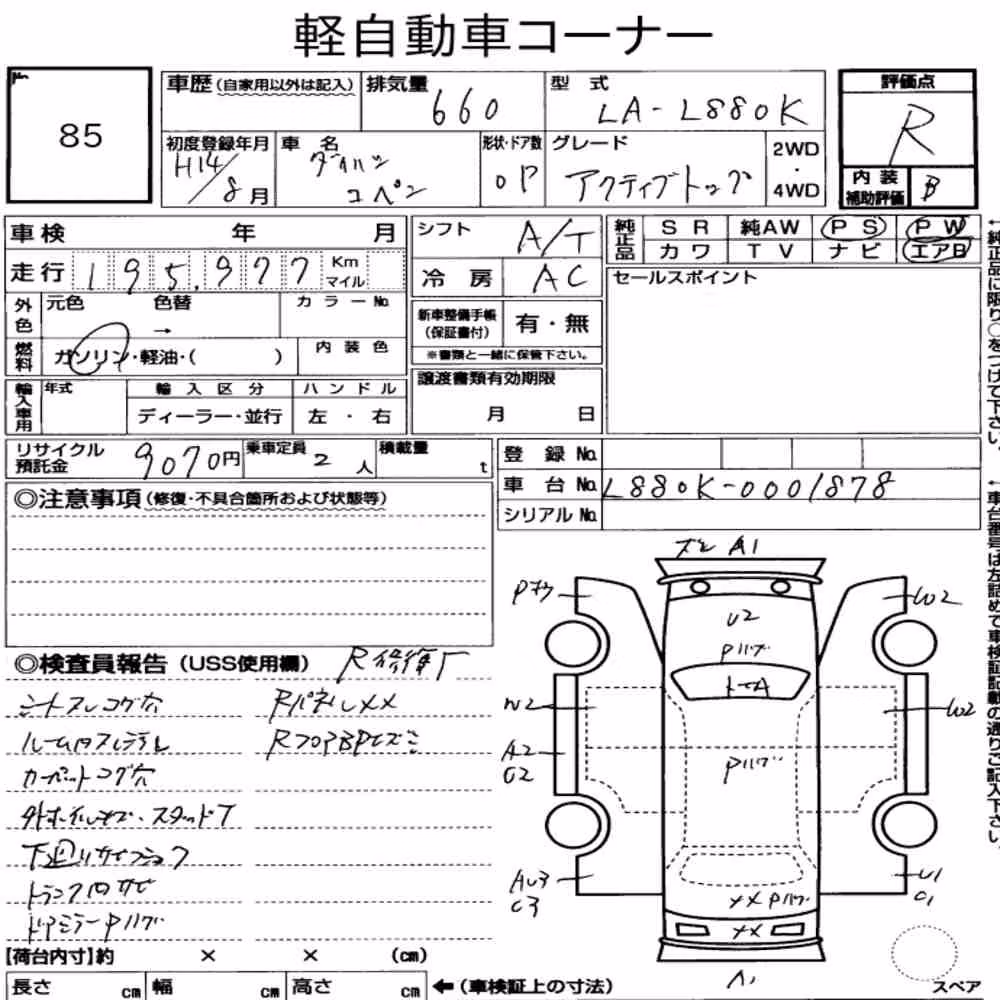 軽自動車コーナー
85
車歴 (自家用以外は記入)
排気量 660
型式 LA-L880K
評価点 R
内装補助評価 B
初度登録年月 H14/8月
車名 ダイハツ コペン
形状・ドア数 OP
グレード アクティブトップ
2WD・4WD
車検 年 月
走行 195,977 Km マイル
外色 元色 色替 → カラーNo.
燃料 ガソリン・軽油・( )
内装色
輸入車用 年式 輸入区分 ハンドル
ディーラー・並行 左・右
シフト A/T
冷房 AC
新車整備手帳(保証書付) 有・無
※書類と一緒に保管下さい。
譲渡書類有効期限
月 日
純正品 SR 純AW PS PW
カワ TV ナビ エアB
セールスポイント
←純正品に限り○をつけて下さい。
リサイクル預託金 9070円
乗車定員 2人
積載量 t
登録No.
車台No. L880K-0001878
シリアルNo.
←車台番号は左詰めで車検証記載の通りご記入下さい。
◎注意事項 (修復・不具合箇所および状態等)
◎検査員報告 (USS使用欄)
シートスレコゲ穴
カーペットコゲ穴
トランク内サビ
ドアミラーPハゲ
A1
W2
U2
Pハゲ
W2
W2
A2
Pハゲ
U1
C1
XX Pハゲ
XX
【荷台内寸】約 × × (cm)
長さ cm 幅 cm 高さ cm ←(車検証上の寸法)
スペア